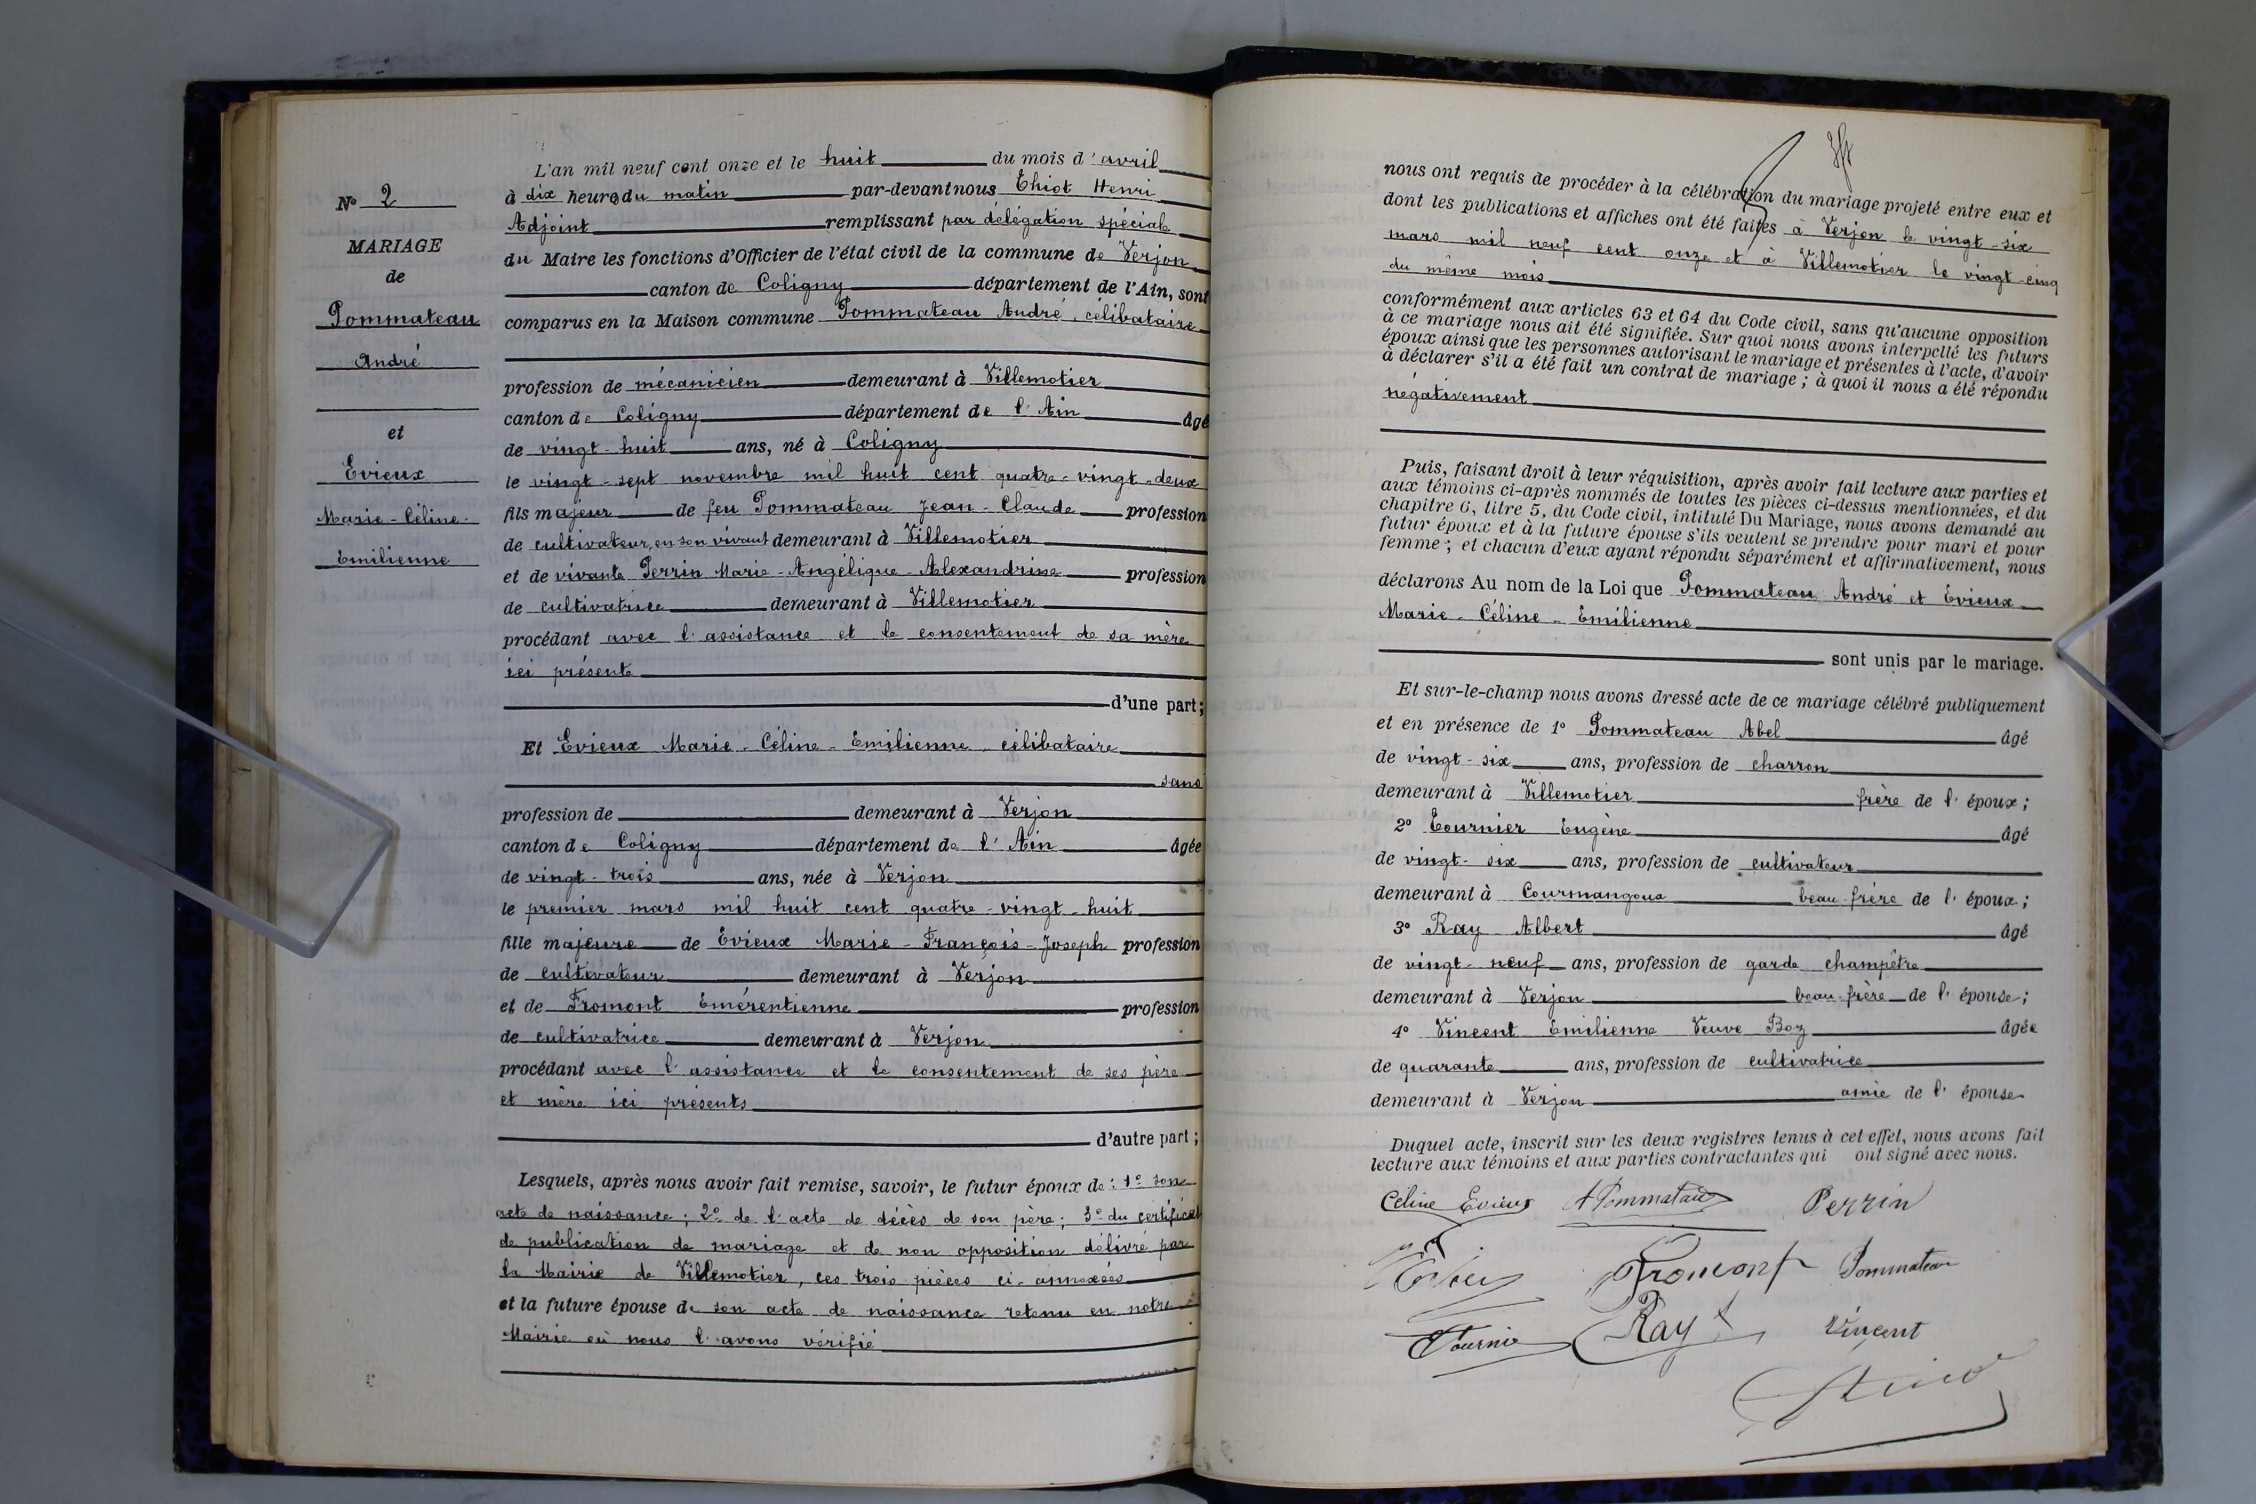 N° 2
MARIAGE
de
Pommateau
André
et
Evieux
Marie-Céline-
Emilienne
L'an mil neuf cent onze et le huit du mois d'avril
à dix heures du matin par-devant nous Thiot Henri
Adjoint remplissant par délégation spéciale
du Maire les fonctions d'Officier de l'état civil de la commune de Verjon
canton de Coligny département de l'Ain, sont
comparus en la Maison commune Pommateau André, célibataire
profession de mécanicien demeurant à Villemotier
canton de Coligny département de l'Ain âgé
de vingt-huit ans, né à Coligny
le vingt-sept novembre mil huit cent quatre-vingt-deux
fils majeur de feu Pommateau Jean-Claude profession
de cultivateur, en son vivant demeurant à Villemotier
et de vivante Perrin Marie-Angélique-Alexandrine profession
de cultivatrice demeurant à Villemotier
procédant avec l'assistance et le consentement de sa mère
ici présente
d'une part;
Et Evieux Marie-Céline-Emilienne célibataire
sans
profession de demeurant à Verjon
canton de Coligny département de l'Ain âgée
de vingt-trois ans, née à Verjon
le premier mars mil huit cent quatre-vingt-huit
fille majeure de Evieux Marie-François-Joseph profession
de cultivateur demeurant à Verjon
et de Fromont Emérentienne profession
de cultivatrice demeurant à Verjon
procédant avec l'assistance et le consentement de ses père
et mère ici présents
d'autre part;
Lesquels, après nous avoir fait remise, savoir, le futur époux de: 1° son
acte de naissance; 2° de l'acte de décès de son père; 3° du certificat
de publication de mariage et de non opposition délivré par
la Mairie de Villemotier, ces trois pièces ci-annexées
et la future épouse de son acte de naissance retenu en notre
Mairie où nous l'avons vérifié
nous ont requis de procéder à la célébration du mariage projeté entre eux et
dont les publications et affiches ont été faites à Verjon le vingt-six
mars mil neuf cent onze et à Villemotier le vingt-cinq
du même mois
conformément aux articles 63 et 64 du Code civil, sans qu'aucune opposition
à ce mariage nous ait été signifiée. Sur quoi nous avons interpellé les futurs
époux ainsi que les personnes autorisant le mariage et présentes à l'acte, d'avoir
à déclarer s'il a été fait un contrat de mariage; à quoi il nous a été répondu
négativement
Puis, faisant droit à leur réquisition, après avoir fait lecture aux parties et
aux témoins ci-après nommés de toutes les pièces ci-dessus mentionnées, et du
chapitre 6, titre 5, du Code civil, intitulé Du Mariage, nous avons demandé au
futur époux et à la future épouse s'ils veulent se prendre pour mari et pour
femme; et chacun d'eux ayant répondu séparément et affirmativement, nous
déclarons Au nom de la Loi que Pommateau André et Evieux
Marie-Céline-Emilienne
sont unis par le mariage.
Et sur-le-champ nous avons dressé acte de ce mariage célébré publiquement
et en présence de 1° Pommateau Abel âgé
de vingt-six ans, profession de charron
demeurant à Villemotier frère de l'époux;
2° Tournier Eugène âgé
de vingt-six ans, profession de cultivateur
demeurant à Courmangoux beau-frère de l'époux;
3° Ray Albert âgé
de vingt-neuf ans, profession de garde champêtre
demeurant à Verjon beau-frère de l'épouse;
4° Vincent Emilienne Veuve Boz âgée
de quarante ans, profession de cultivatrice
demeurant à Verjon amie de l'épouse
Duquel acte, inscrit sur les deux registres tenus à cet effet, nous avons fait
lecture aux témoins et aux parties contractantes qui ont signé avec nous.
Céline Evieux A Pommateau Perrin
Fromont Pommateau
Tournier Ray Vincent